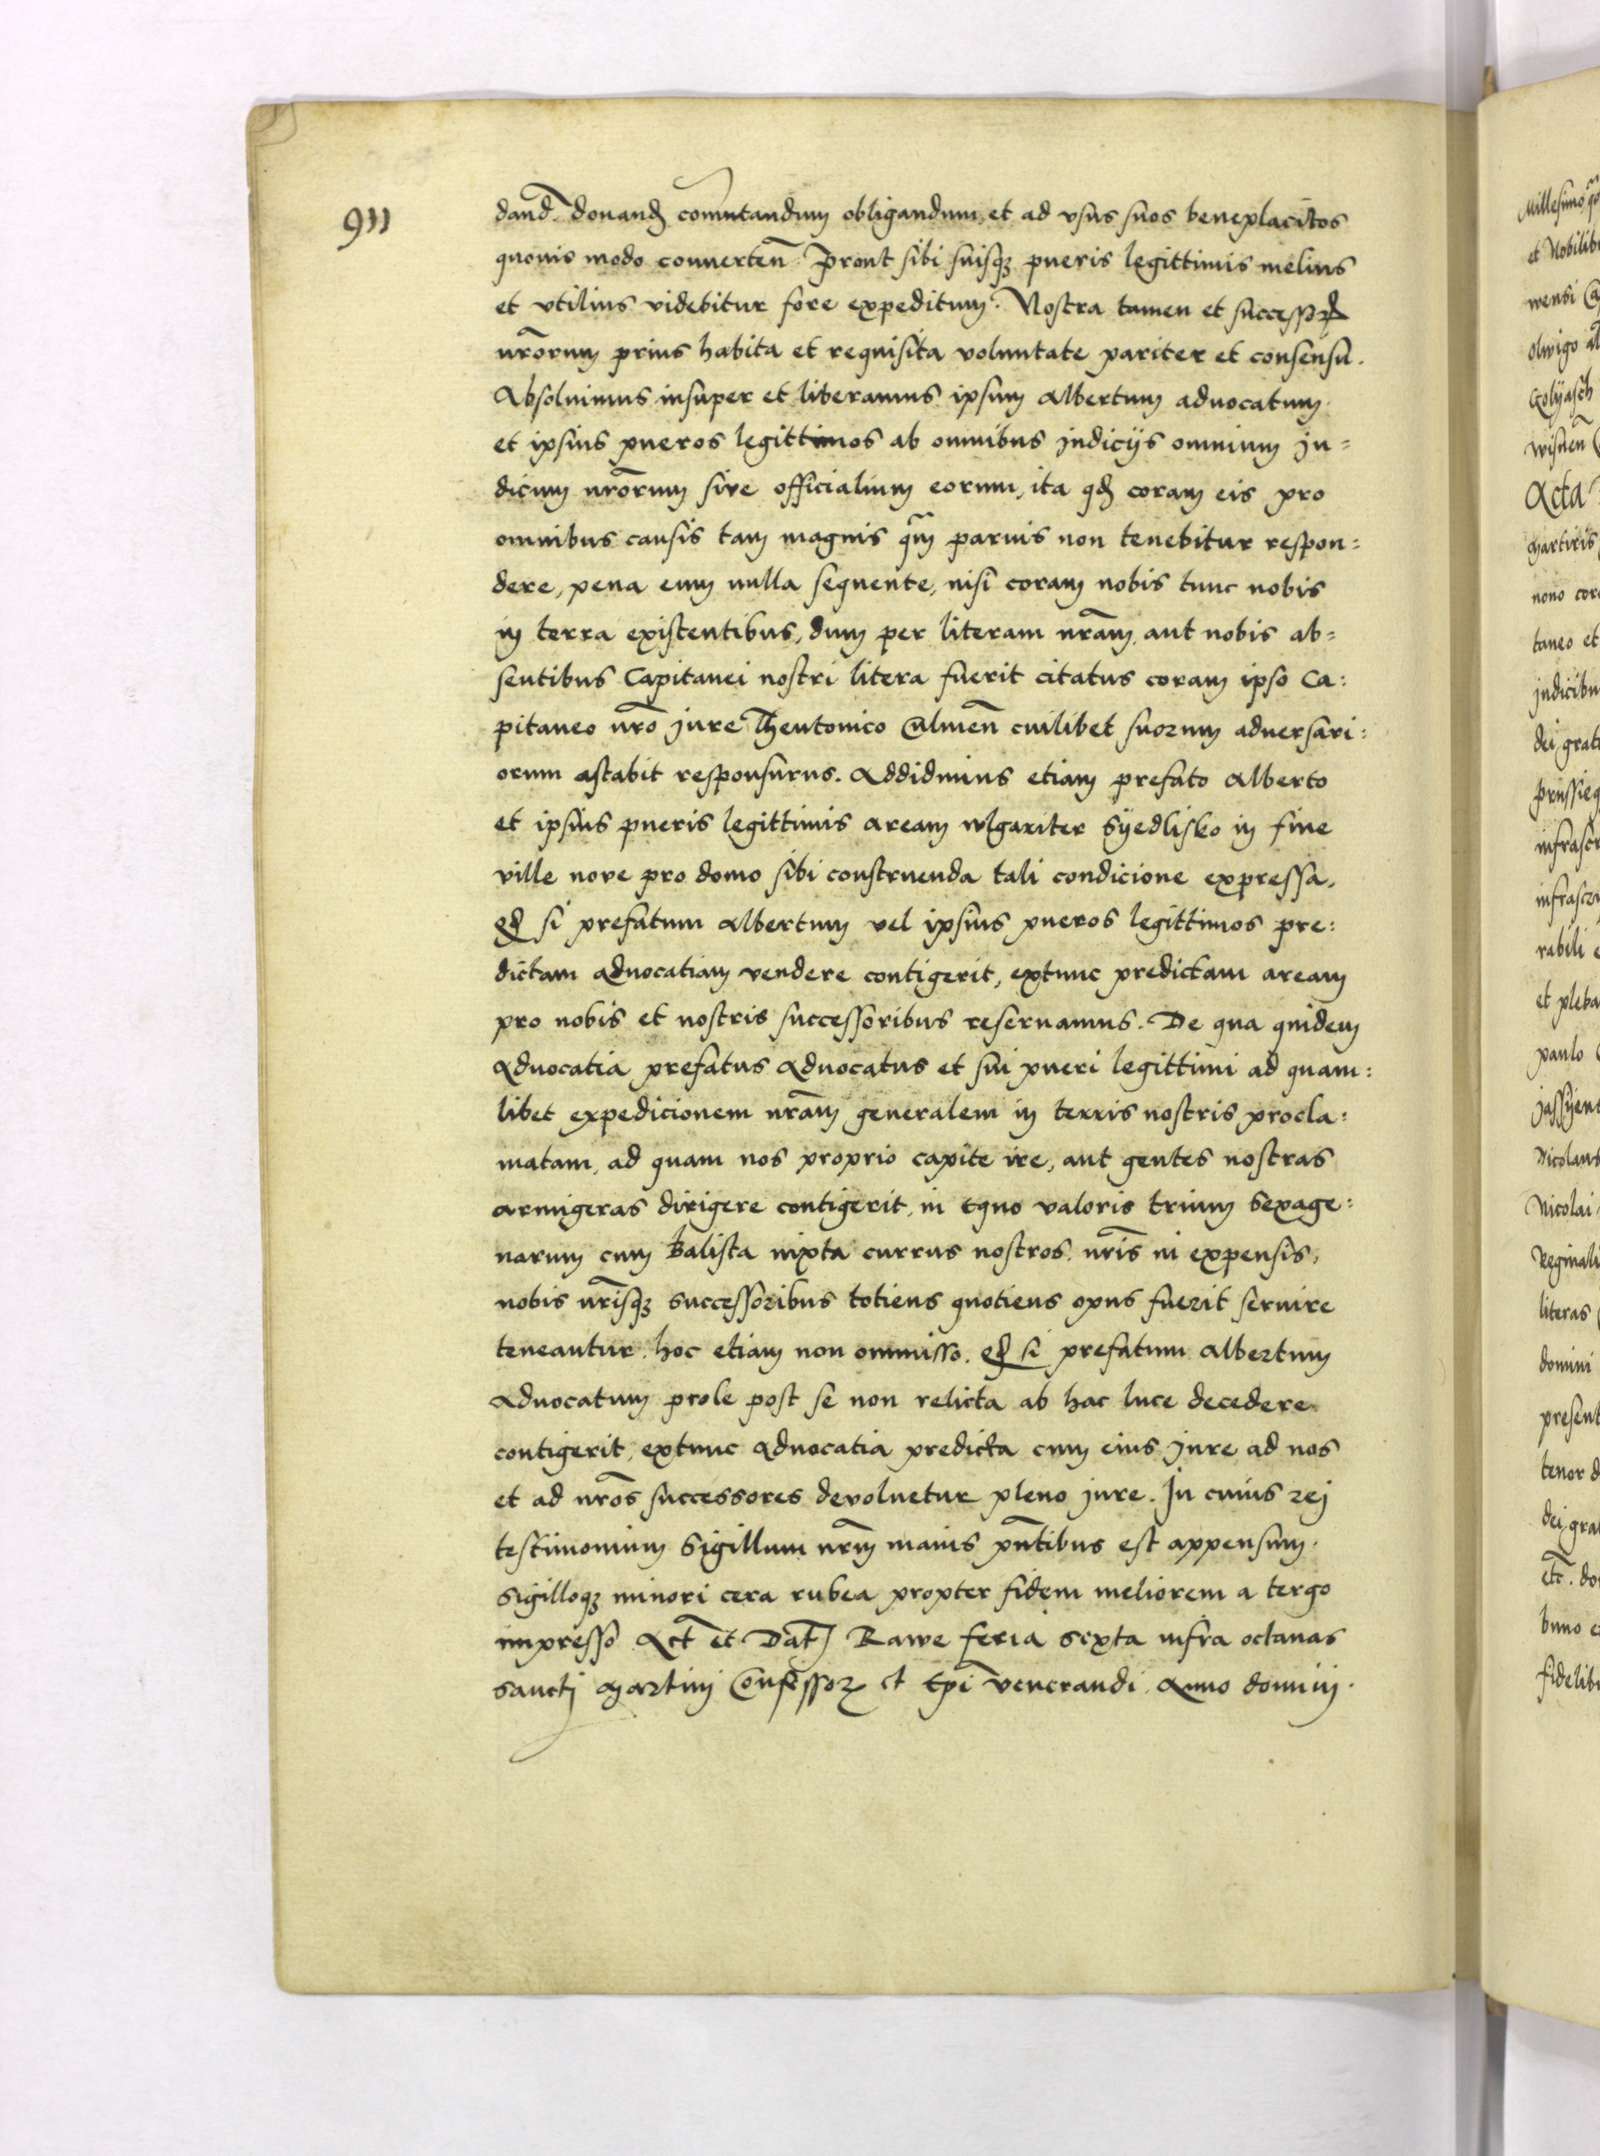 911
dand̄ donand̄ comutandum obligandum, et ad vsus suos beneplacitos
quouis modo conuerten̄ Prout sibi suisq3 pueris legittimis melius
et vtilius videbitur fore expeditum. Nostra tamen et successor̄
nr̄orum prius habita et requisita voluntate pariter et consensu.
Absoluimus insuper et liberamus ipsum Albertum aduocatum
et ipsius pueros legittimos ab omnibus Judicijs omnium Ju=
dicum nr̄orum siue officialium eorum, ita qd̄ coram eis pro
omnibus causis tam magnis q̄m paruis non tenebitur respon=
dere, pena eum nulla sequente, nisi coram nobis tunc nobis
in terra existentibus, dum per literam nr̄am, aut nobis ab=
sentibus Capitanei nostri litera fuerit citatus coram ipso Ca=
pitaneo nr̄o Jure Theutonico Culmen̄ cuilibet suorum aduersari=
orum astabit responsurus. Addidimus etiam prefato Alberto
et ipsius pueris legittimis aream wlgariter Syedlisko in fine
ville noue pro domo sibi construenda tali condicione expressa,
qd̄ si prefatum Albertum vel ipsius pueros legittimos pre=
dictam aduocatiam vendere contigerit, extunc predictam aream
pro nobis et nostris successoribus reseruamus. De qua quidem
Aduocatia prefatus Aduocatus et sui pueri legittimi ad quam=
libet expedicionem nr̄am generalem in terris nostris procla=
matam, ad quam nos proprio capite ire, aut gentes nostras
armigeras dirigere contigerit, in equo valoris trium sexage=
narum cum Balista iuxta currus nostros, nr̄is in expensis,
nobis nr̄isq3 successoribus totiens quotiens opus fuerit seruire
teneantur, hoc etiam non ommisso, qd̄ si prefatum Albertum
Aduocatum prole post se non relicta ab hac luce decedere
contigerit, extunc Aduocatia predicta cum eius Jure ad nos
et ad nr̄os successores deuoluetur pleno Jure. In cuius rej
testimonium Sigillum nr̄m maius pn̄tibus est appensum.
Sigilloq3 minori cera rubea propter fidem meliorem a tergo
impresso Act̄ et Dat̄ Rawe feria sexta infra octauas
sanctj Martini Confessor̄ et Ep̄i venerandi Anno domini.